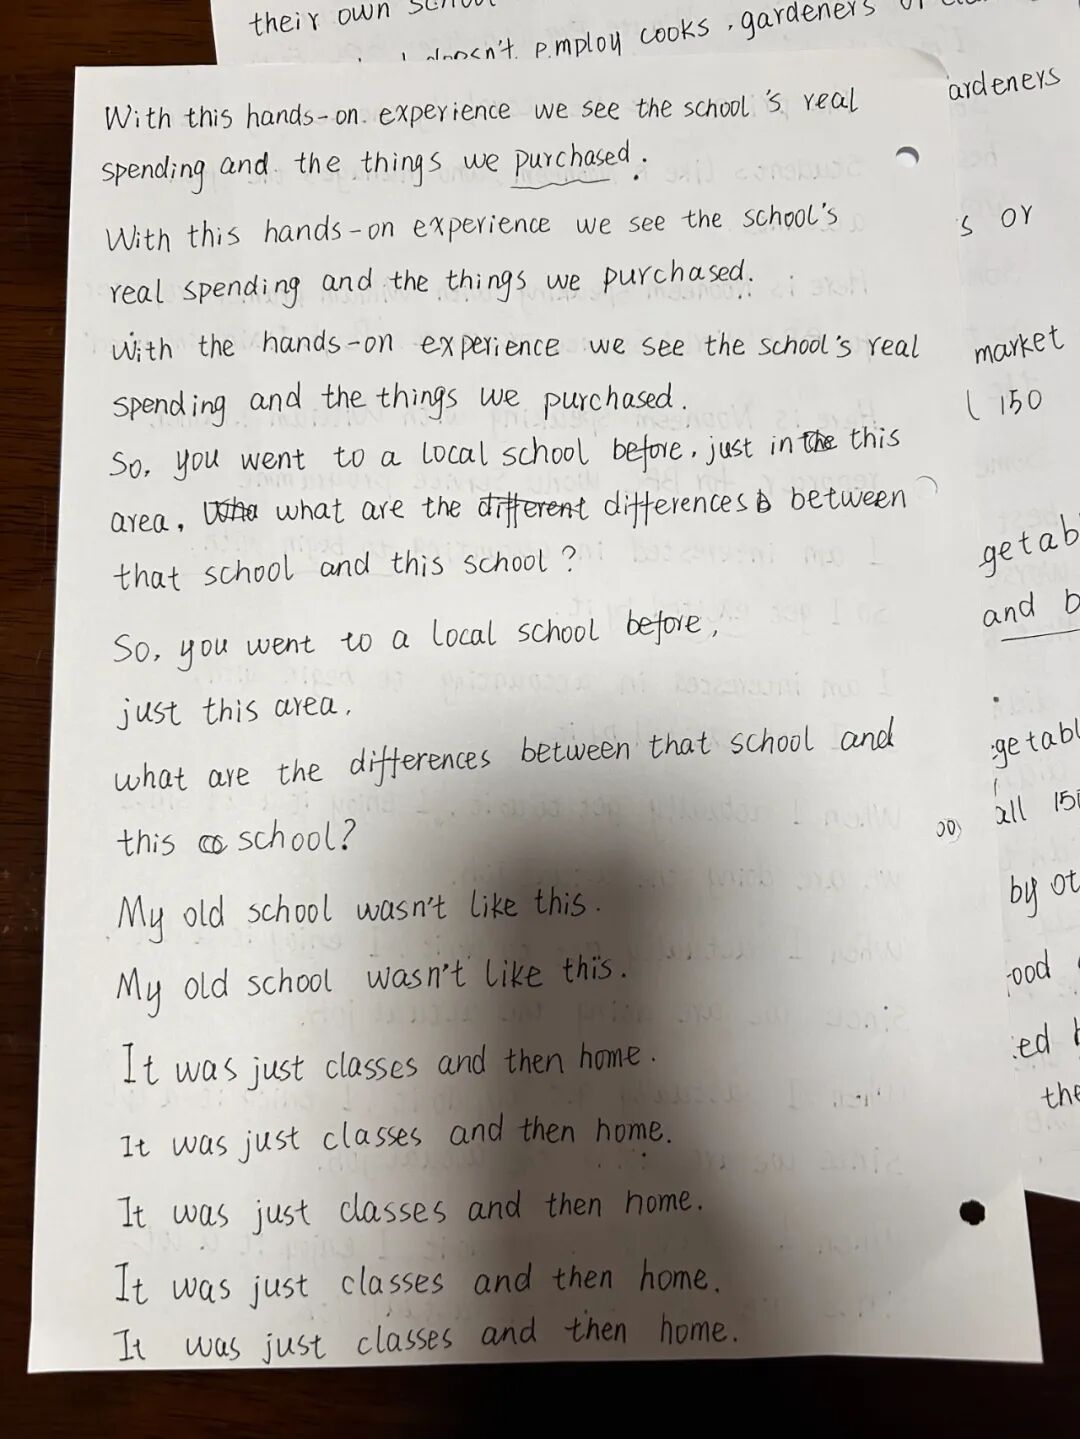 their own
doesn't employ cooks, gardeners
With this hands-on experience we see the school's real
spending and the things we purchased.
With this hands-on experience we see the school's
real spending and the things we purchased.
With the hands-on experience we see the school's real
spending and the things we purchased.
So, you went to a local school before, just in the this
area, Wha what are the different differences between
that school and this school?
So, you went to a local school before,
just this area,
what are the differences between that school and
this school?
My old school wasn't like this.
My old school wasn't like this.
It was just classes and then home.
It was just classes and then home.
It was just classes and then home.
It was just classes and then home.
It was just classes and then home.
ardeners
s or
market
150
getab
and b
getabl
all 150
by ot
ood
ed
the